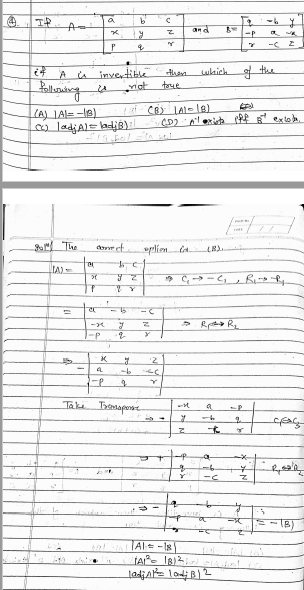 ④. If A = [ a b c
x y z
p q r ] and B = [ q -b y
-p a -x
r -c z ]
if A is invertible then which of the
following is not true
(A) |A| = -|B| (B) |A| = |B|
(C) |adj A| = |adj B| (D) A⁻¹ exists iff B⁻¹ exists
Solⁿ The correct option is (B).
|A| = | a b c
x y z
p q r | ⇒ C₁ → -C₁ , R₁ → -R₁
= | a -b -c
-x y z
-p q r | ⇒ R₁ ↔ R₂
⇒ - | x y z
a -b -c
-p q r |
Take Transpose ⇒ - | -x a -p
y -b q
z -c r | C₁ ↔ C₃
⇒ + | -p a -x
q -b y
r -c z | R₁ ↔ R₂
⇒ - | q -b y
-p a -x
-c z | = -|B|
|A| = -|B|
|A|² = |B|²
|adj A|² = |adj B|²